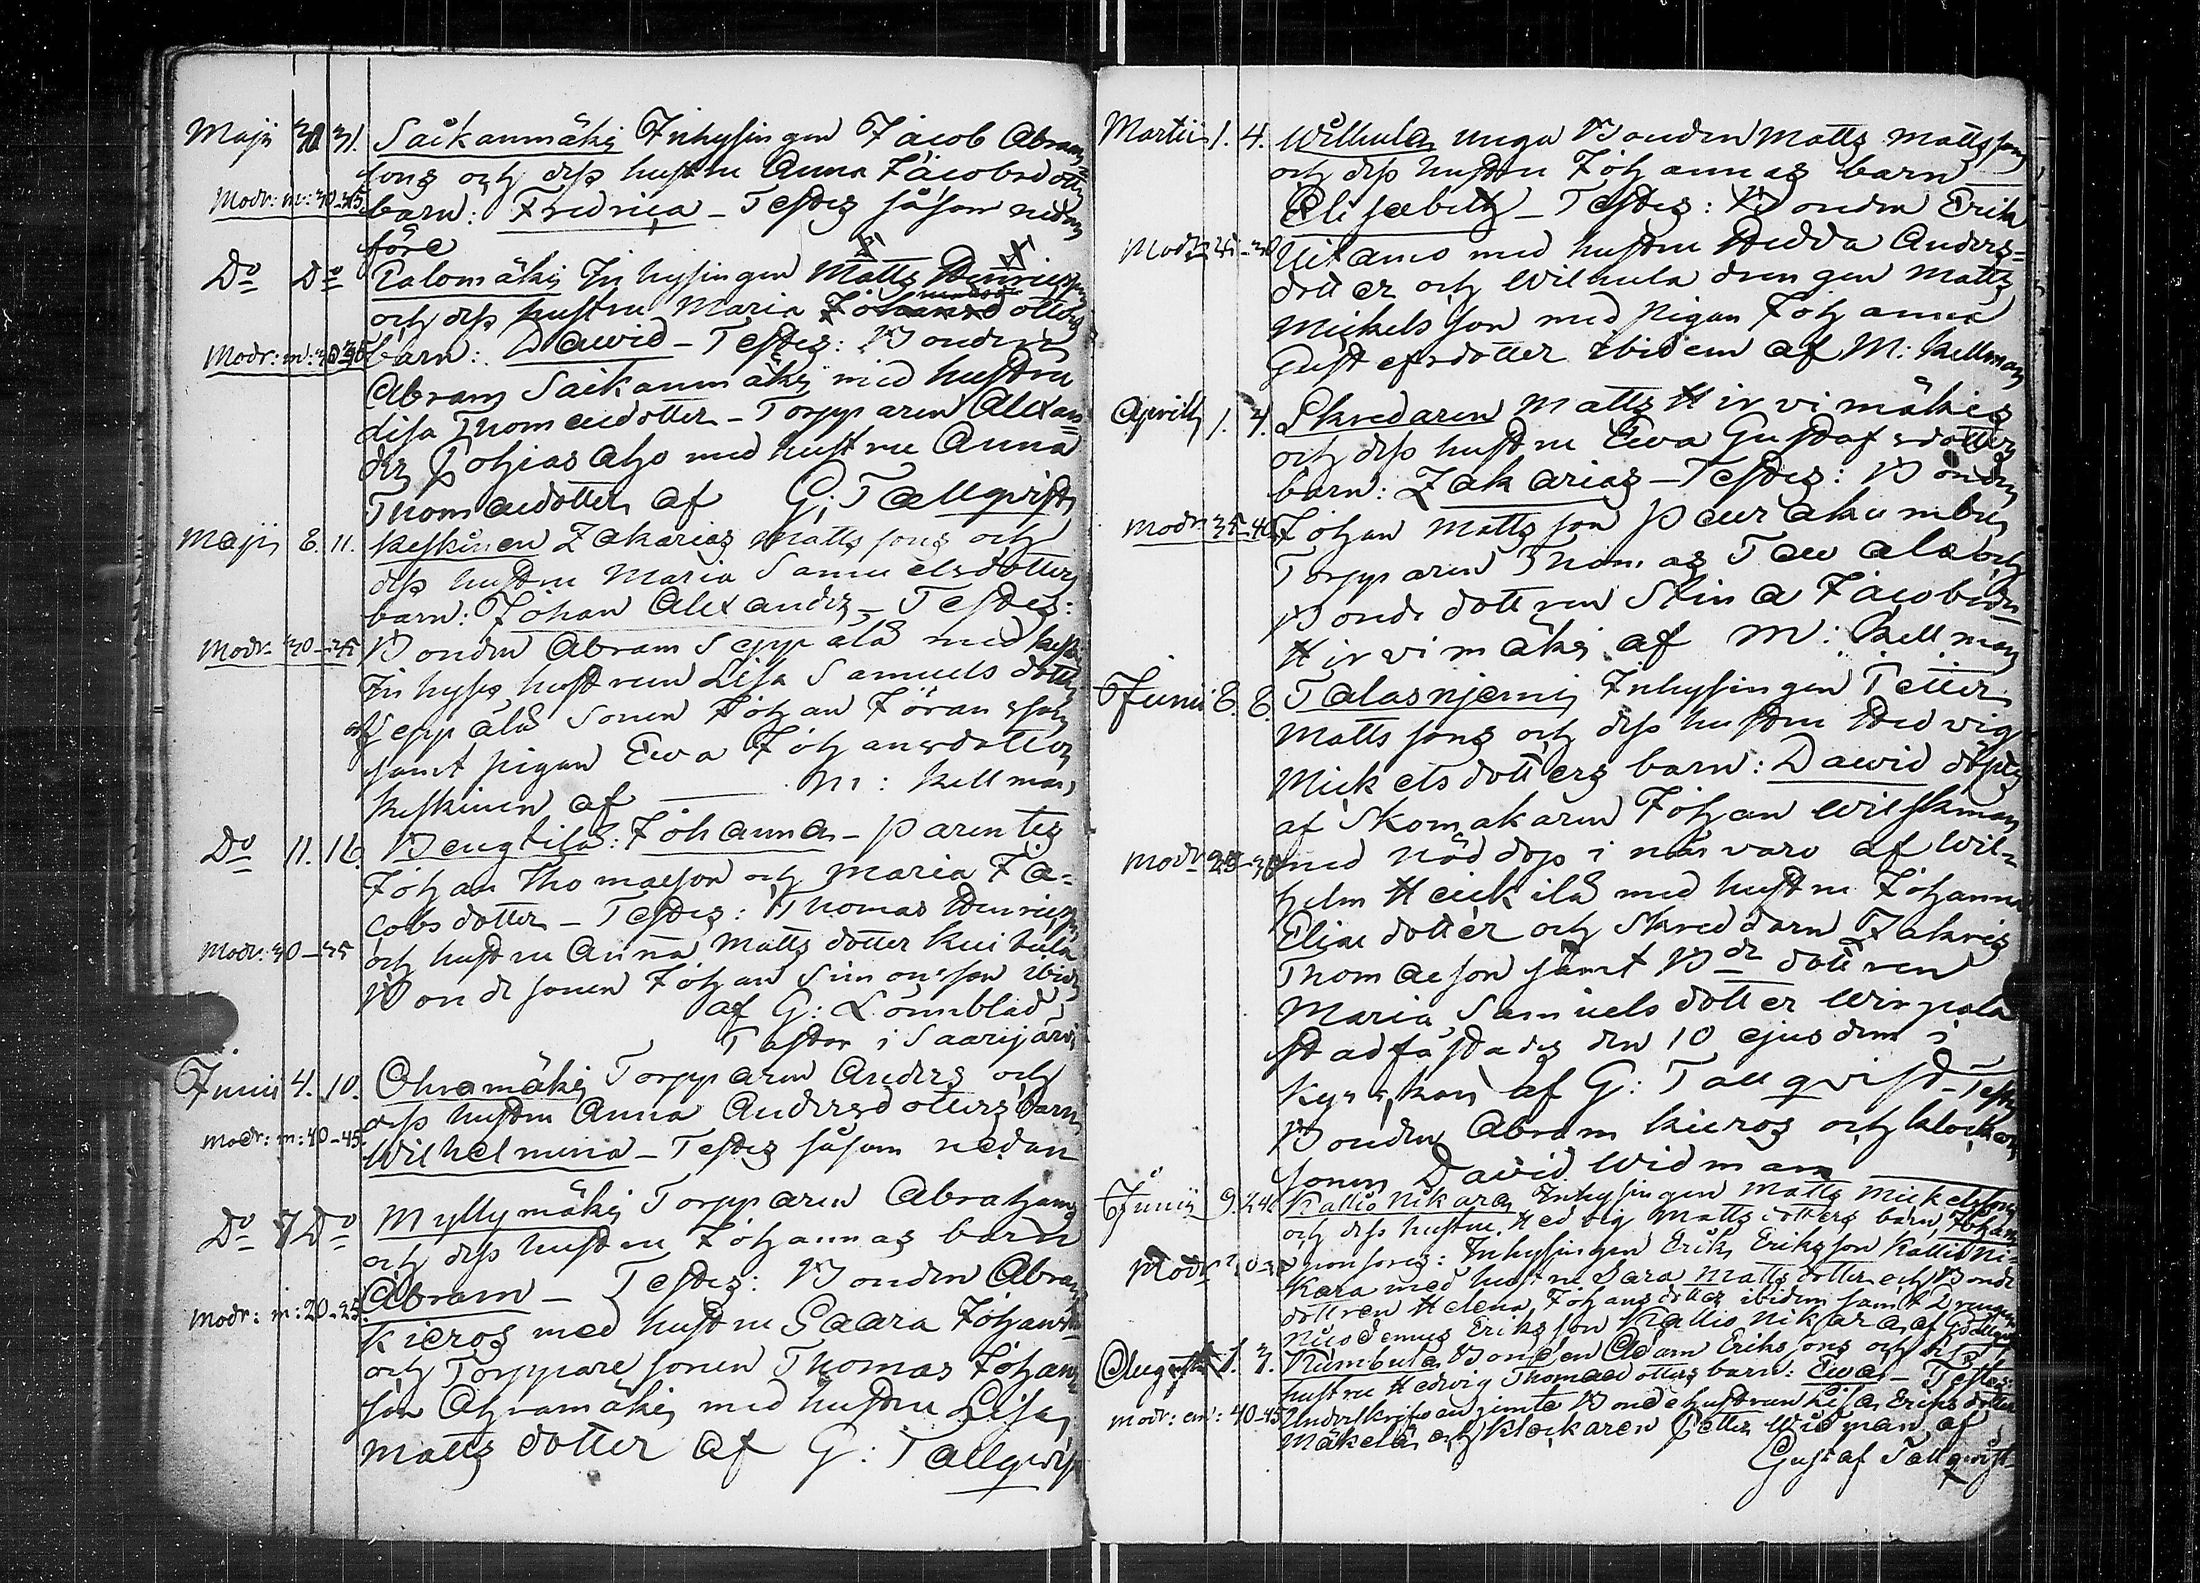 Maji 30 31. Saikanmäki Inhysingen Jacob Abram
sons och dess hustru Anna Jacobsdotters
Modr: m: 30-35 barn: Fredrica - Testes såsom nedan
före
Do Do Palomäki Inhysingen Matts Henricsson
och dess hustru Maria dotters
Modr: m: barn: Dawid - Testes: Bonden
Abram Saikanmäki med hustru
Lisa Thomaedotter - Torpparen Alexan=
der Pohjasaho med hustru Anna
Thomaedotter af G: Tallqvist
Maji 8. 11. Keskinen Zakarias Matts sons och
dess hustru Maria Samuelsdotters
barn: Johan Alexander - Testes:
Modr 30-35 Bonden Abram Seppälä med
Inhyses hustrun Lisa Samuels dotter
Seppälä Sonen Johan Göransson
samt pigan Ewa Johansdotter
Keskinen af M: Kellman
Do 11. 16. Bengtilä: Johanna - Parentes
Johan Thomaeson och Maria Ja=
cobs dotter - Testes: Thomas Henricsson
Modr: 30-35 och hustru Anna Matts dotter Kuihula
Bonde sonen Johan Simonsson ibid.
af G: Lönnblad
Pastor i Saarijärvi
Junii 4. 10. Ohramäki Torpparen Anders och
dess hustru Anna Andersdotters barn
Modr: m: 40-45. Wilhelmina - Testes såsom nedan
Do 7 Do Myllymäki Torpparen Abrahams
och dess hustru Johannas barn
Abram - Testes: Bonden Abram
Modr: m: 20-25. Kieros med hustru Saara Johansd
och Torppare sonen Thomas Johans
son Ohramäki med hustru Lisa
Matts dotter af G: Tallqvist
Martii 1. 4. Wilhula unga Bonden Matts Mattssons
och dess hustru Johannas barn
Elisabeth - Testes: Bonden Erik
Modr Uitamo med hustru Hedda Anders=
dotter och Wilhula drengen Matts
Mickels son med pigan Johanna
Gustafsdotter ibidem af M: Kellman
Aprill 1. 4. Skredaren Matts Hirvimäkis
och dess hustru Ewa Gustafsdotters
barn: Zakarias - Testes: Bonden
Modr 35-40 Johan Matts son Paurakumbu
Torpparen Thomas Tavala och
Bonde dottren Stina Jacobsdr
Hirvimäki af M: Kellman
Junii 8. 8. Talasnjemi Inhysingen Petter
Matts sons och dess hustru Hedvig
Mickelsdotters barn: Dawid döptes
af Skomakaren Johan Wilskman
Modr med nöd dop i närvaro af Wil=
helm Heickilä med hustru Johanna
Eliae dotter och Skreddarn Zakris
Thomaeson samt Bde dottren
Maria Samuels dotter Wirpala
stadfästades den 10 ejusdem i
Kyrckan af G: Tallqvist - Testes
Bonden Abram Kieros och klockare
sonen David Widman
Junii 9. Kallio Nikara Inhysingen Matts Mickelssons
och dess hustru Hedvig Matts dotters barn Johan
Modr sponsores: Inhysingen Erik Eriksson Kallio Ni=
kara med hustru Sara Matts dotter och Bonde
dottren Helena Johans dotter ibidem samt Drengen
Nicodemus Eriksson Kallio Nikkara af G: Tallqvist
Augusti 1. 7. Kumbula Bonden Adam Eriks sons och dess
hustru Hedwig Thomaedotters barn: Ewa - Testes:
modr: em: 40-45 Bondehustrun Lisa Eriks dotter
Mäkelä och klockaren Petter Widman af
Gustaf Tallqvist